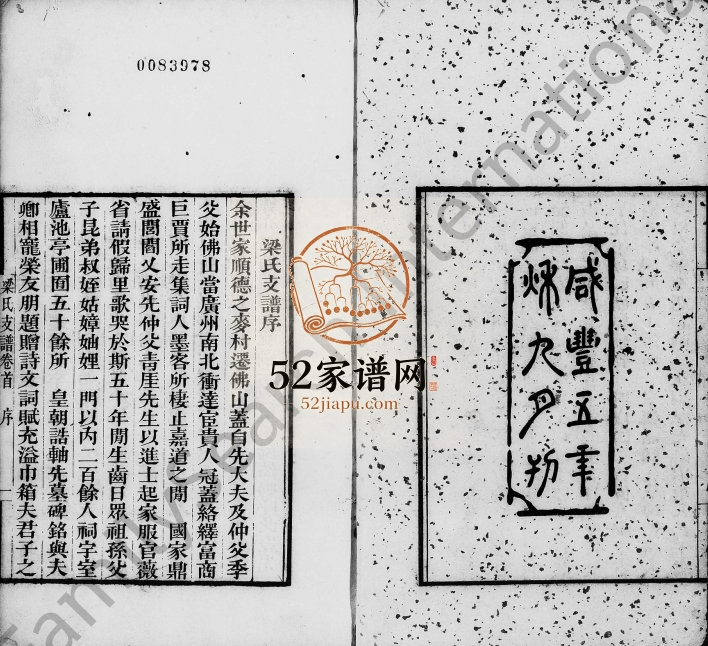 0083978
咸豐五年
秌九月刊
梁氏支譜序
余世家順德之麥村遷佛山蓋自先大夫及仲父季
父始佛山當廣州南北衝達宦貴人冠蓋絡繹富商
巨賈所走集詞人墨客所棲止嘉道之閒　國家鼎
盛閭閻乂安先仲父靑崖先生以進士起家服官薇
省請假歸里歌哭於斯五十年閒生齒日眾祖孫父
子昆弟叔姪姑嫜妯娌一門以內二百餘人祠宇室
廬池亭圃囿五十餘所　皇朝誥軸先墓碑銘與夫
卿相寵榮友朋題贈詩文詞賦充溢巾箱夫君子之
梁氏支譜卷首　序　一
52家谱网
52jiapu.com
FamilySearch International